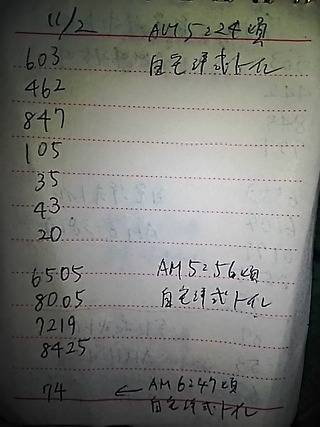 11/2 AM5:24頃
603 自宅洋式トイレ
462
847
105
35
43
20
6505 AM5:56頃
8005 自宅洋式トイレ
7219
8425
74 ← AM6:47頃
自宅洋式トイレ